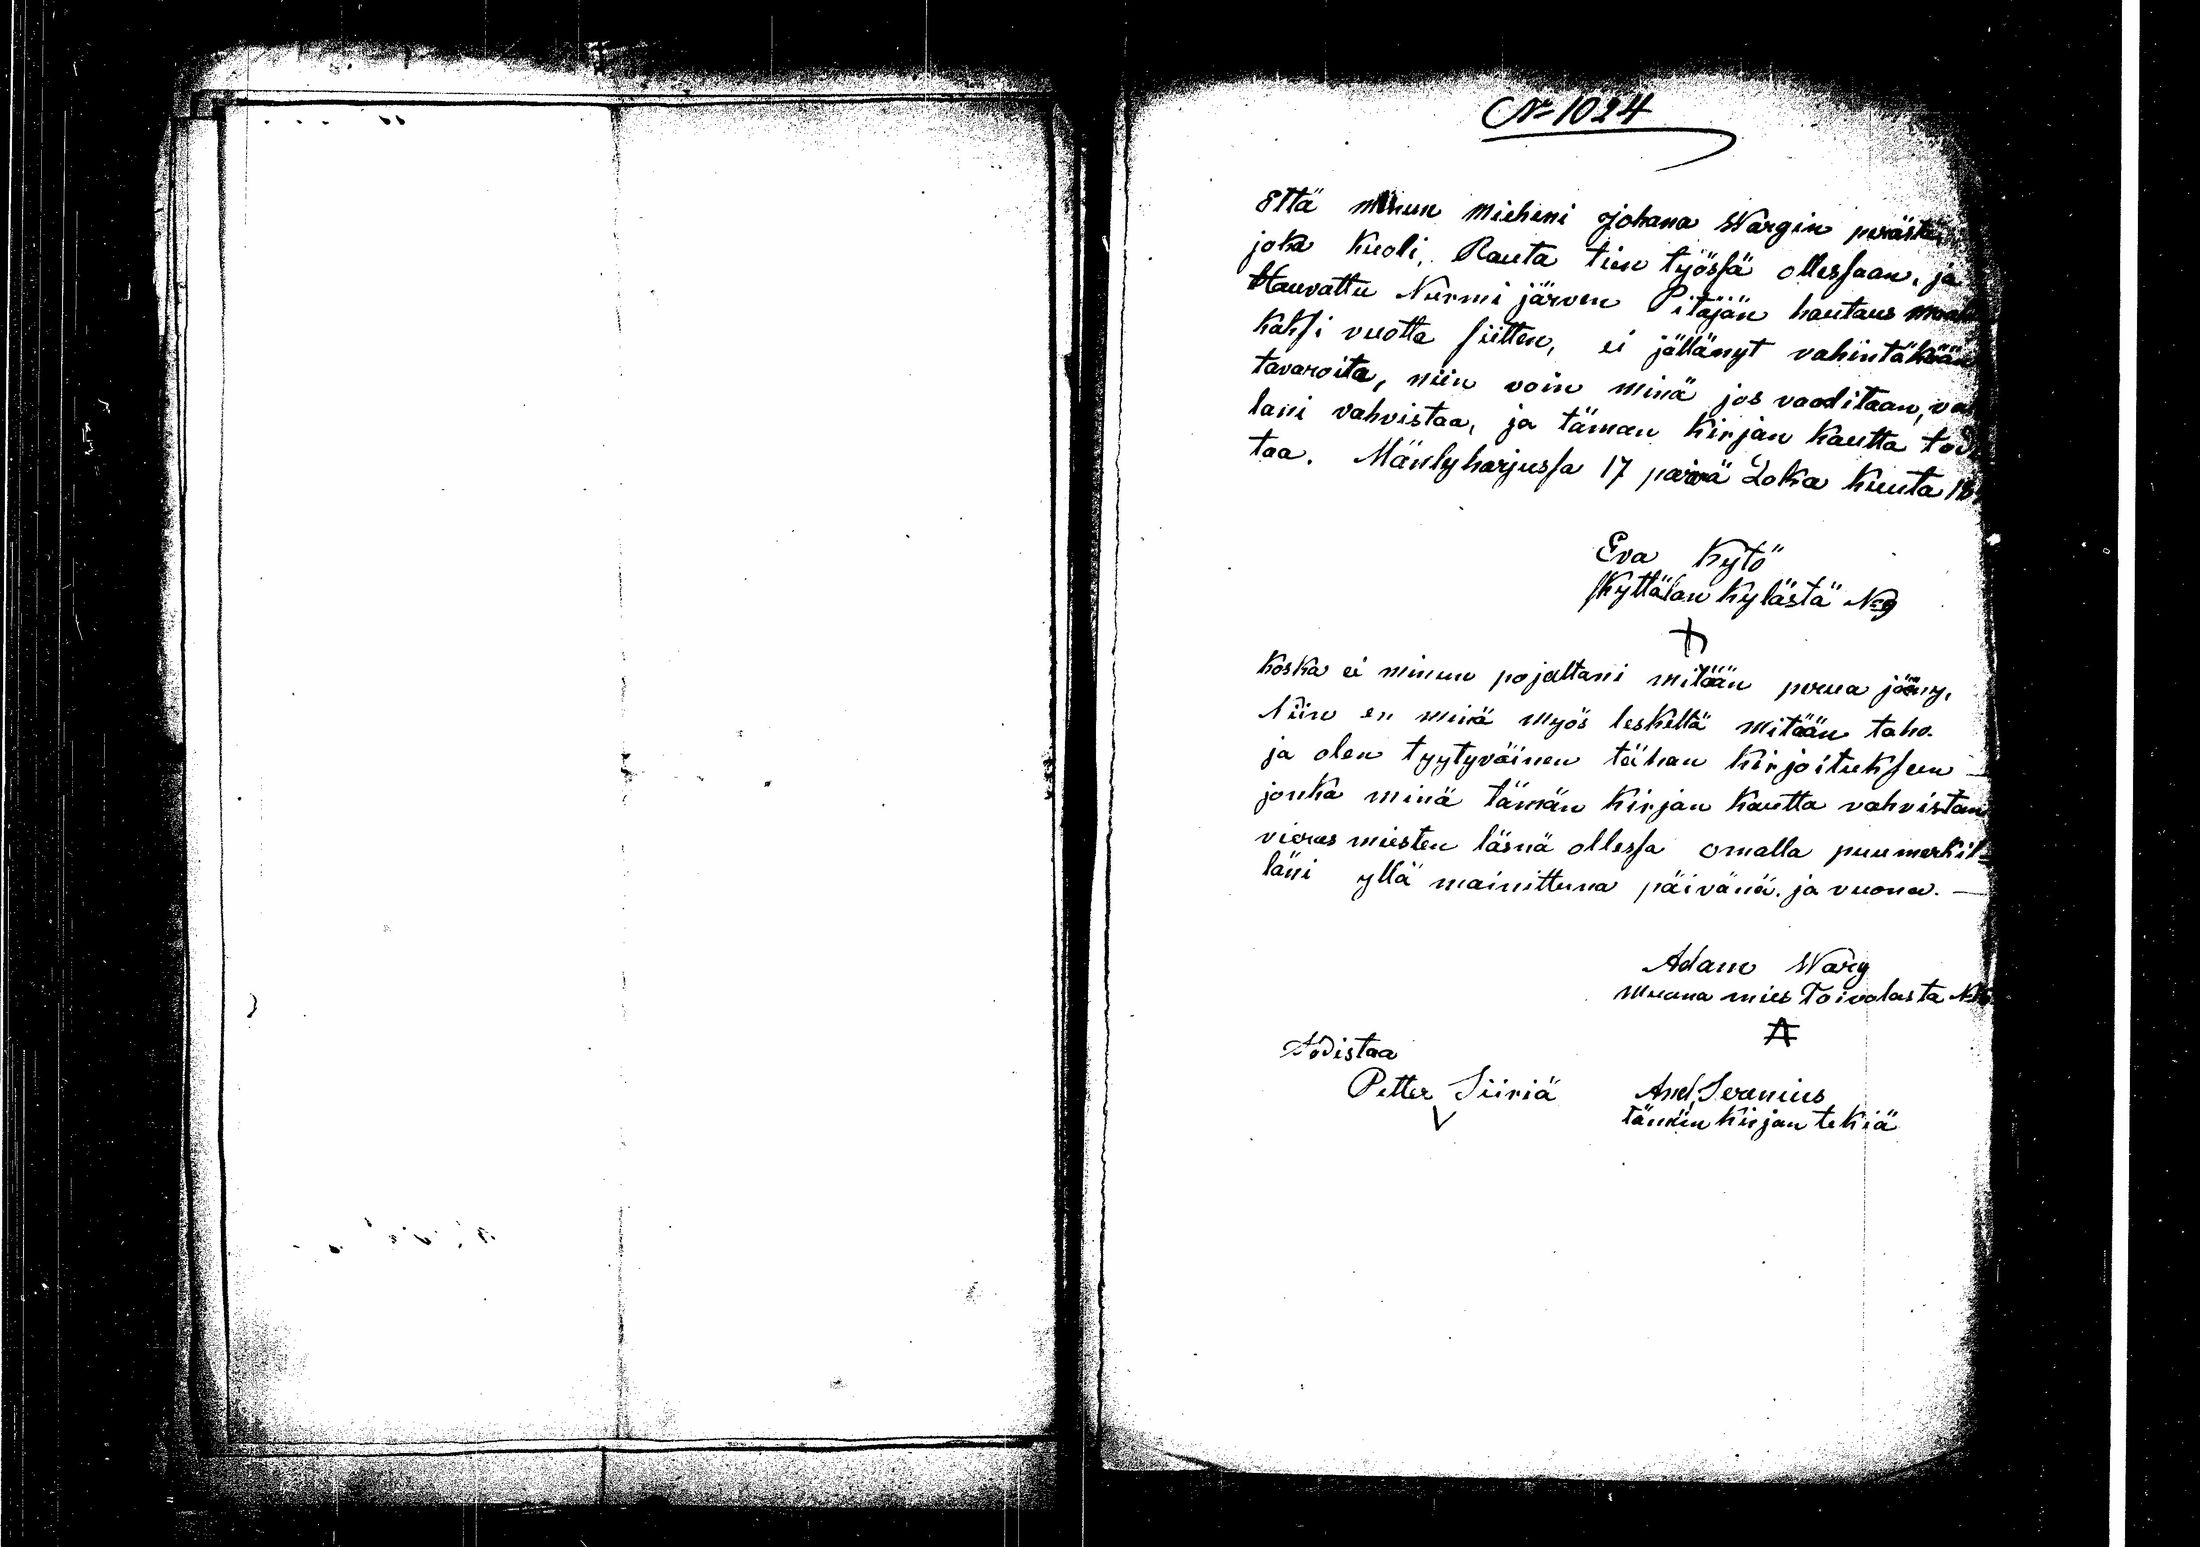 No 1024
Että minun mieheni Johana Wargin perästä
joka kuoli, Rauta tien työssä ollessaan, ja
Hauvattu Nurmi järven Pitäjän hautaus
kaksi vuotta siitten, ei jällänyt vahintäkään
tavaroita, niin voin minä jos vaaditaan, va
lani vahvistaa, ja täman kirjan kautta todi
taa. Mäntyharjussa 17 päivä Loka kuuta 18
Eva Kytö
Kyttälan kylästä No 9
Koska ei minun pojaltani mitään perua jääny,
Niin en minä myös leskeltä mitään taho.
ja olen tyytyväinen tähan kirjoitukseen —
jonka minä tämän kirjan kautta vahvistan
vieras miesten läsnä ollessa omalla puumerkil=
läni yllä mainittuna päivänä ja vuona. —
Adam Warg
Muona mies Toivolasta No
Todistaa
Petter Siiriä And. Serenius
tämän kirjan tekiä